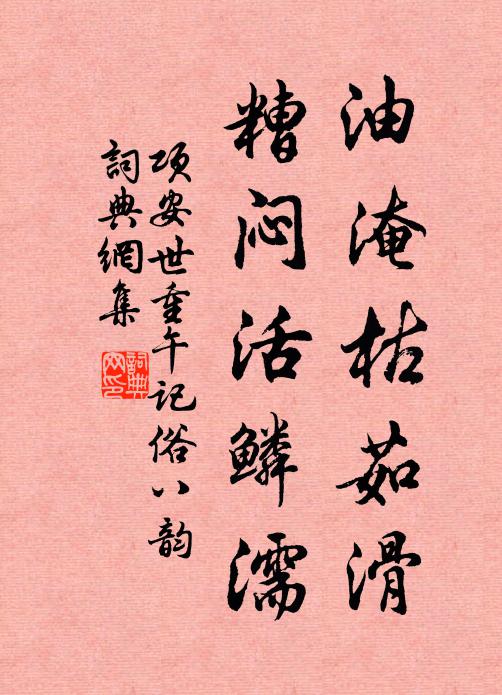 油淹枯茹滑
糟闷活鳞濡
项安世重午记俗八韵
詞典網集
詞典網印